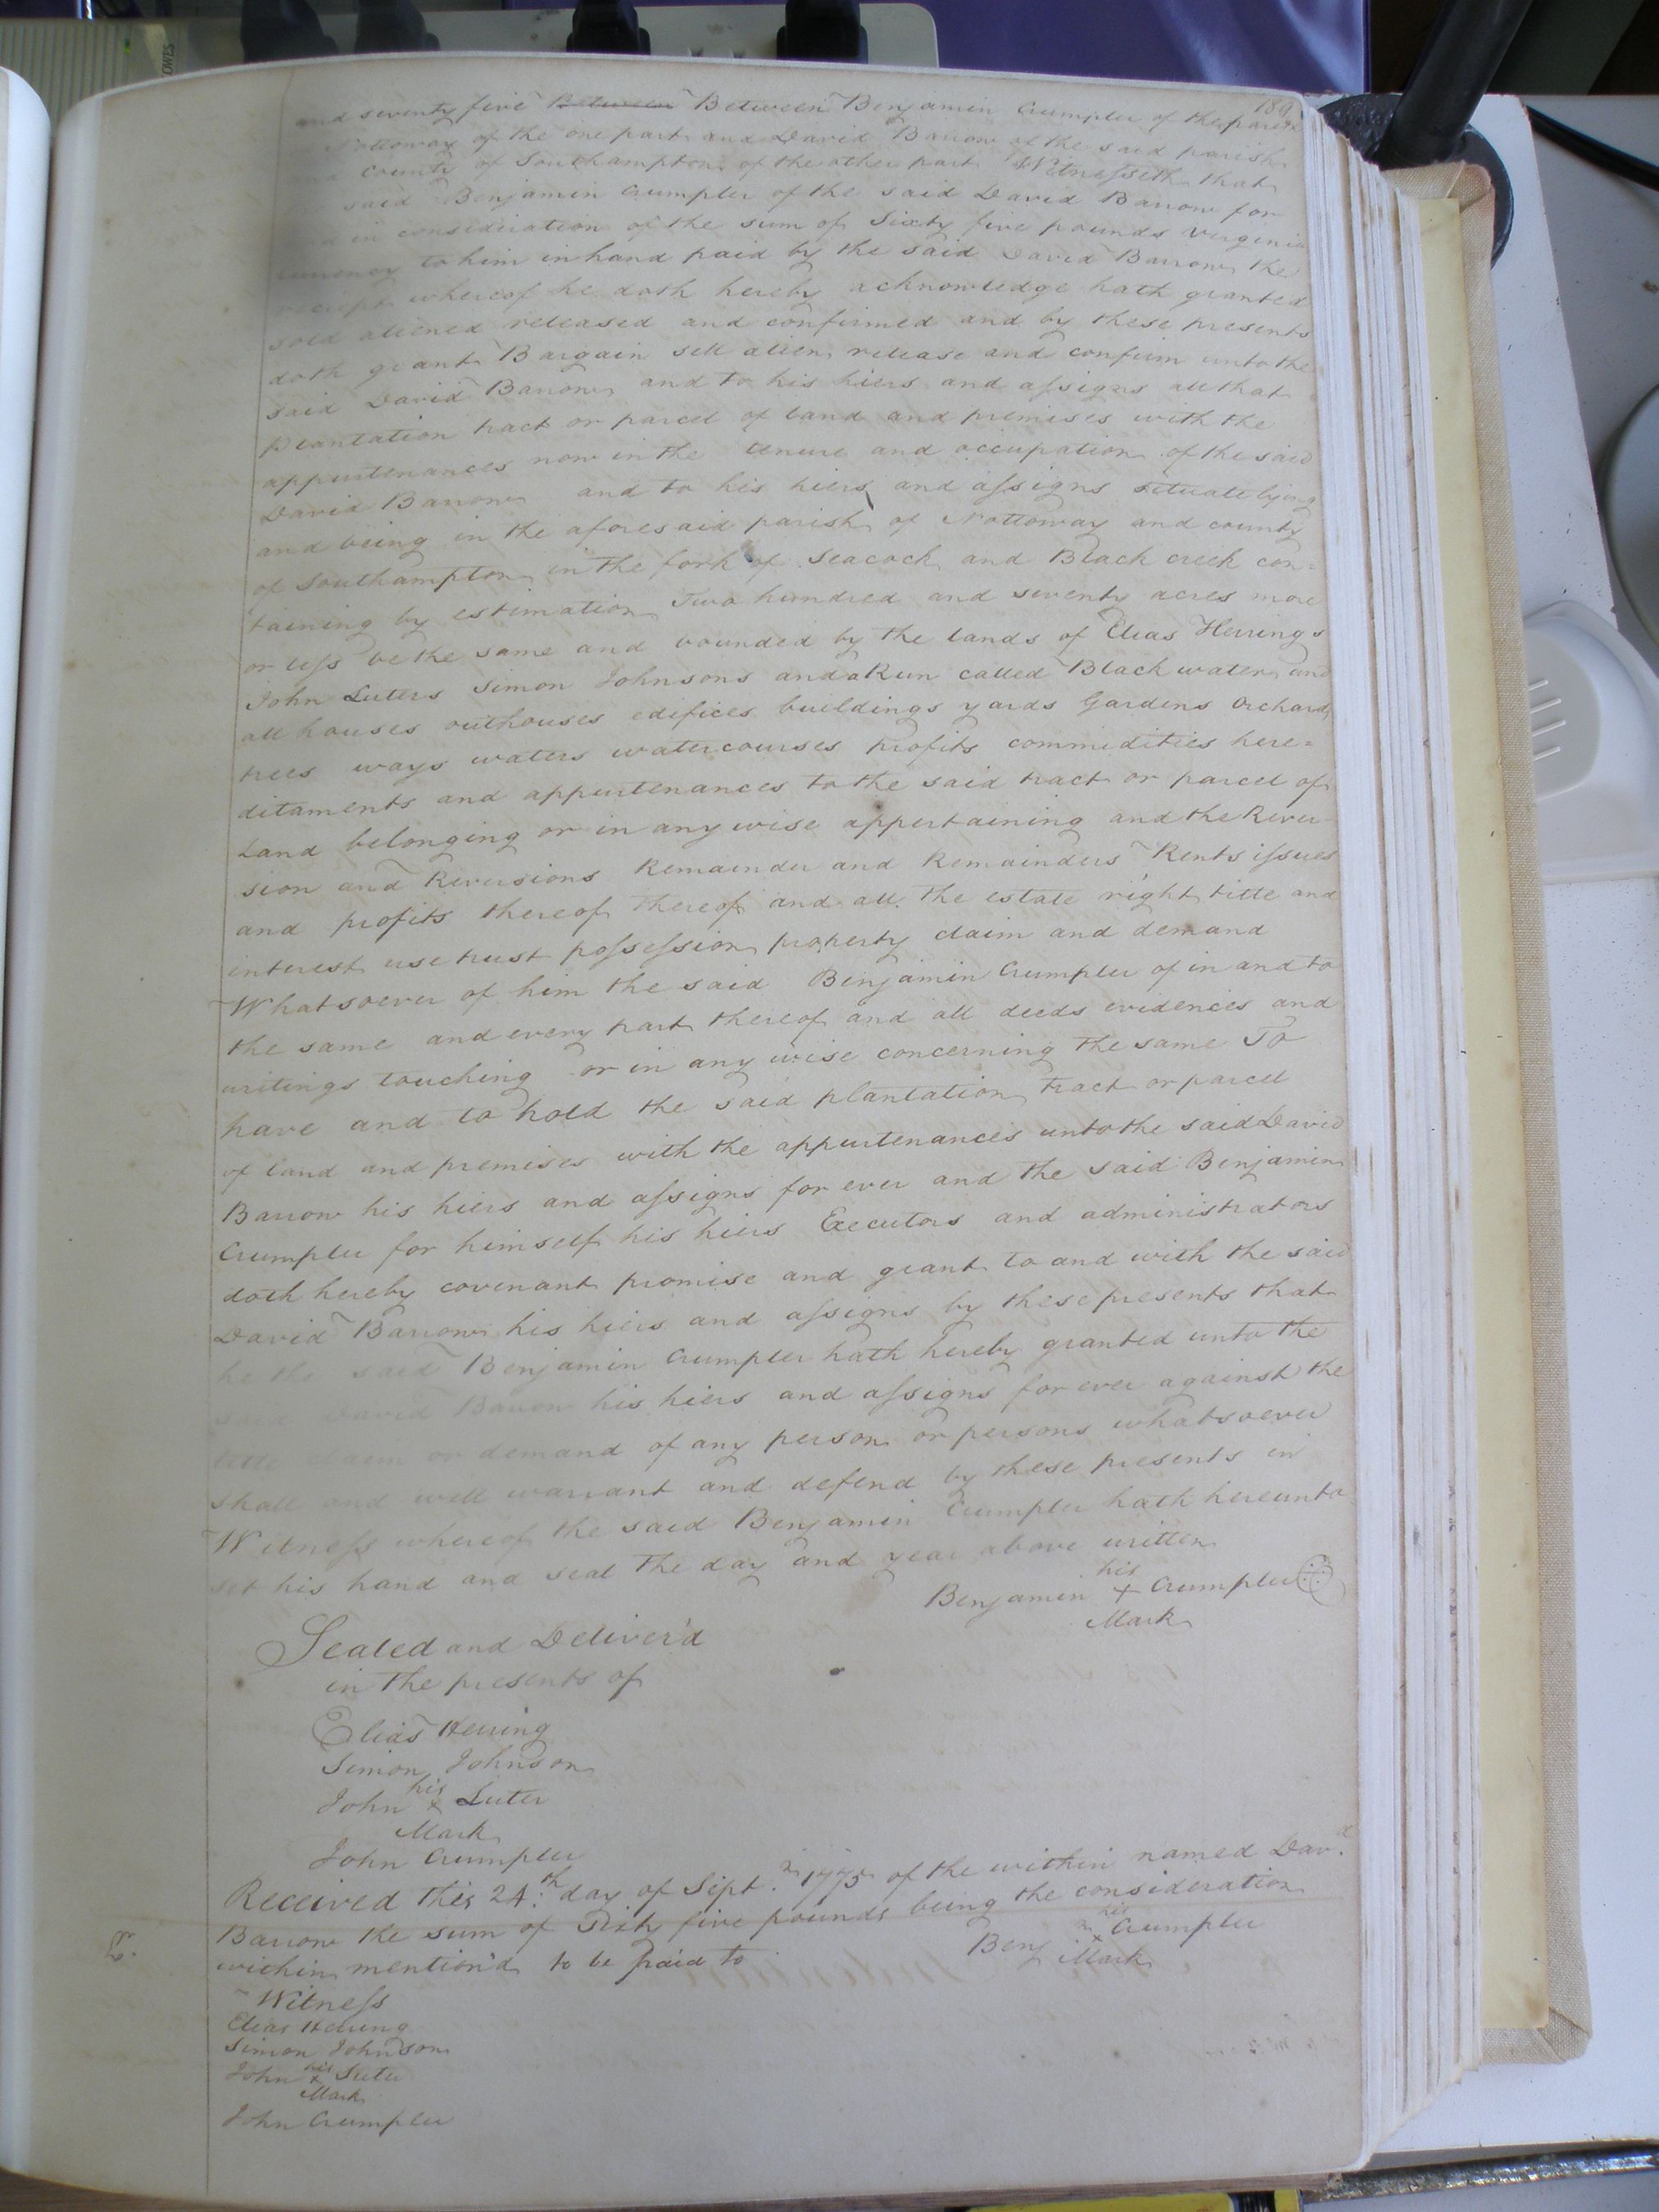 and seventy five Between Between Benjamin Crumpler of the parish
Nottoway of the one part and David Barrow of the said parish
County of Southampton of the other part Witnesseth that
said Benjamin Crumpler of the said David Barrow for
in consideration of the sum of Sixty five pounds Virginia
currency to him in hand paid by the said David Barrow the
receipt whereof he doth hereby acknowledge hath granted
sold aliened released and confirmed and by these presents
doth grant Bargain sell alien release and confirm unto the
said David Barrow and to his hiers and assigns all that
plantation tract or parcel of land and premises with the
appurtenances now in the tenure and occupation of the said
David Barrow and to his hiers and assigns situate lying
and being in the aforesaid parish of Nottoway and county
of Southampton in the fork of Seacock and Black creek con=
taining by estimation Two hundred and seventy acres more
or less be the same and bounded by the lands of Elias Herrings
John Luters Simon Johnsons and a Run called Black water and
all houses outhouses edifices buildings yards Gardens Orchards
trees ways waters watercourses profits commidities here=
ditaments and appurtenances to the said tract or parcel of
Land belonging or in any wise appertaining and the Rever
sion and Reversions Remainder and Remainders Rents issues
and profits thereof thereof and all the estate right title and
interest use trust possession property claim and demand
Whatsoever of him the said Benjamin Crumpler of in and to
the same and every part thereof and all deeds evidences and
writings touching or in any wise concerning the same To
have and to hold the said plantation tract or parcel
of land and premises with the appurtenances unto the said David
Barrow his hiers and assigns for ever and the said Benjamin
Crumpler for himself his hiers Executors and administrators
doth hereby covenant promise and grant to and with the said
David Barrow his hiers and assigns by these presents that
he the said Benjamin Crumpler hath hereby granted unto the
said David Barrow his hiers and assigns for ever against the
title claim or demand of any person or persons whatsoever
shall and will warrant and defend by these presents in
Witness whereof the said Benjamin Crumpler hath hereunto
set his hand and seal the day and year above written
his
Benjamin + Crumpler
Mark
Sealed and Deliver'd
in the presents of
Elias Herring
Simon Johnson
his
John x Luter
Mark
John Crumpler
Received this 24th day of Sept. 1775 of the within named Davd
Barrow the sum of Sixty five pounds being the consideration
within mention'd to be paid to
his
Benj x Crumpler
Mark
Witness
Elias Herring
Simon Johnson
his
John x Luter
Mark
John Crumpler